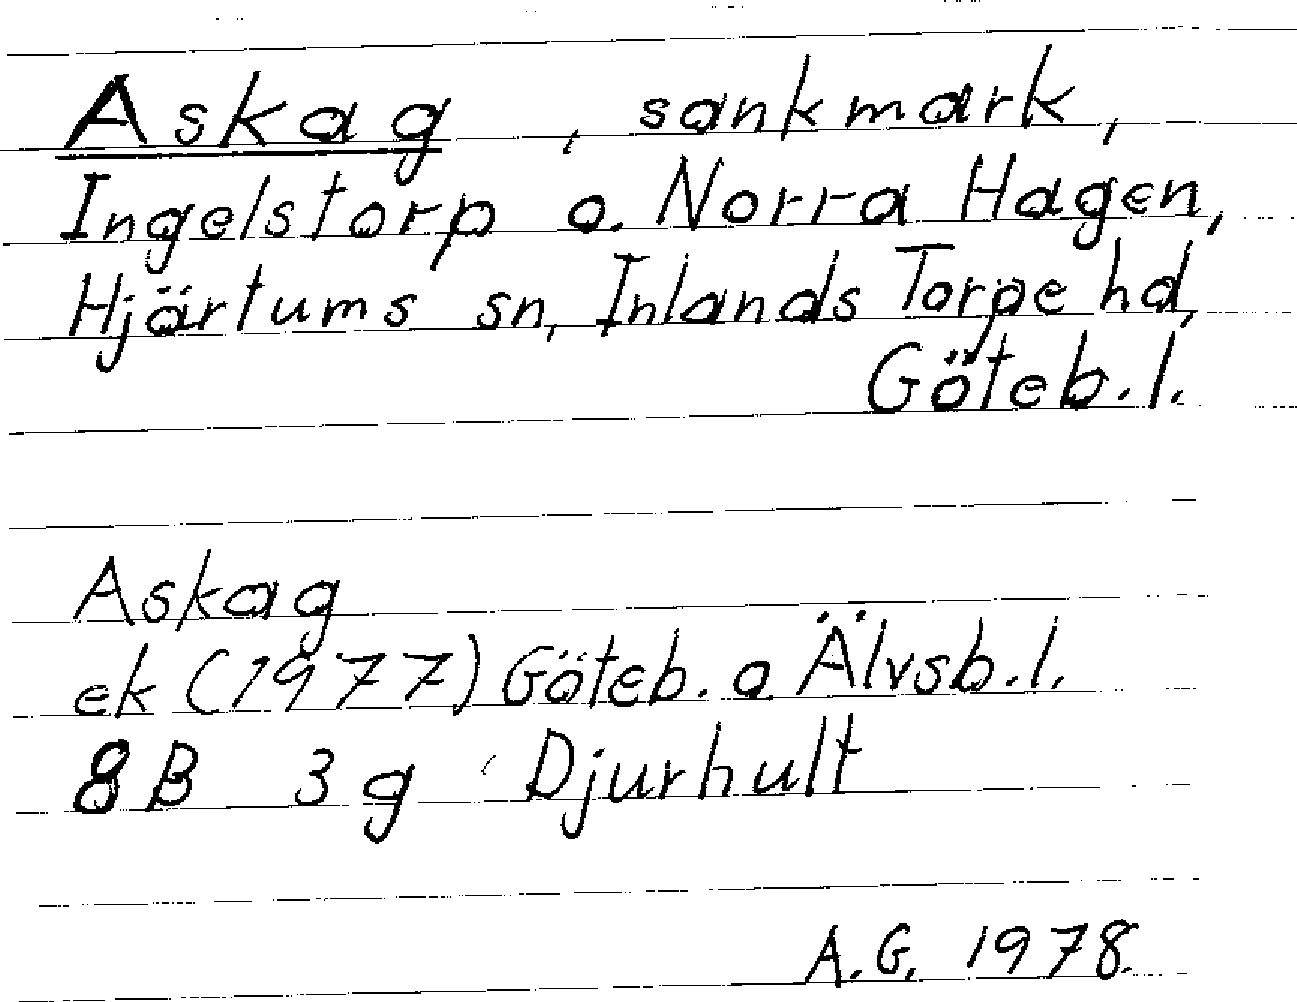 Askag , sankmark,
Ingelstorp o. Norra Hagen,
Hjärtums sn, Inlands Torpe hd,
Göteb. l.
Askag
ek (1977) Göteb. o Älvsb. l.
8B 3g Djurhult
A.G. 1978.